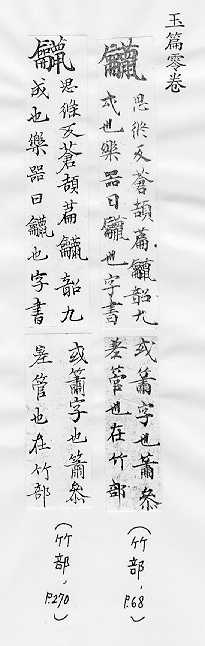 玉篇零卷
思條反蒼頡篇韶九
成也樂器曰也字書
或簫字也簫參
差管也在竹部
(竹部,P.68)
思維反蒼頡篇韶九
成也樂器曰也字書
或簫字也簫參
差管也在竹部
(竹部,P.270)